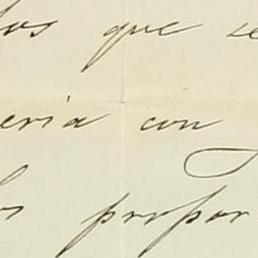 los que se
eria con
los propor